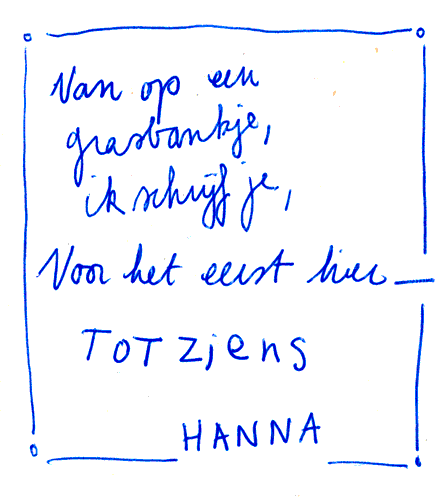 Van op een
grasbankje,
ik schrijf je,
Voor het eerst hier
TOT Ziens
HANNA